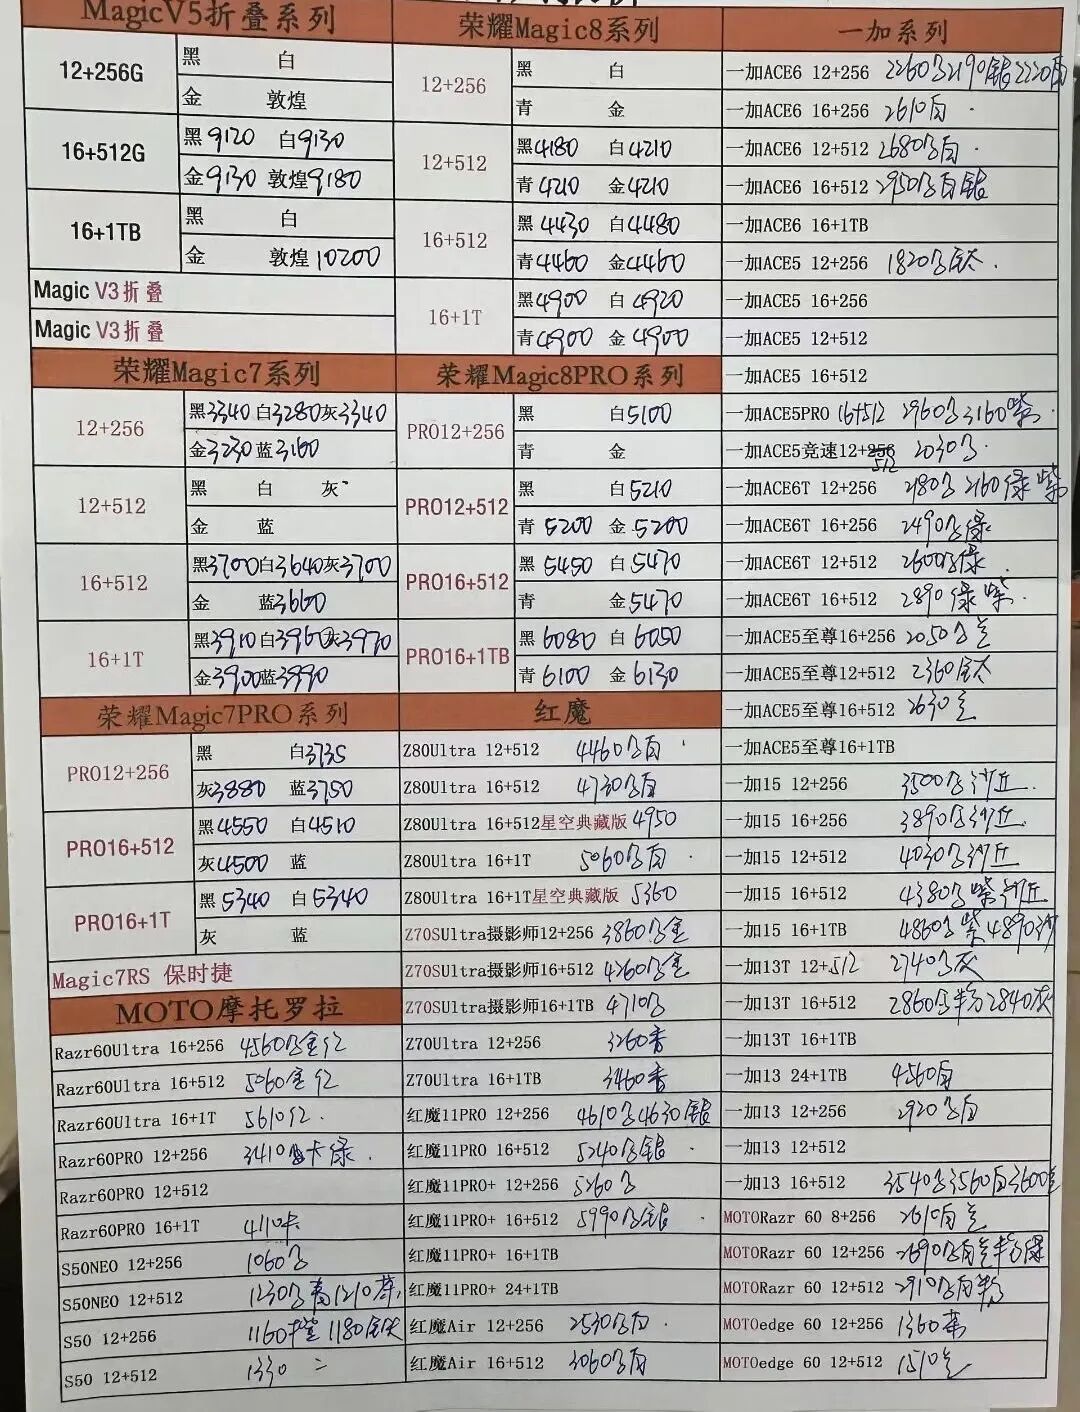 MagicV5折叠系列
12+256G 黑 白
金 敦煌
16+512G 黑9120 白9130
金9130 敦煌9180
16+1TB 黑 白
金 敦煌10200
Magic V3折叠
Magic V3折叠
荣耀Magic7系列
12+256 黑3340 白3280 灰3340
金3230 蓝3160
12+512 黑 白 灰
金 蓝
16+512 黑3700 白3640 灰3700
金 蓝3660
16+1T 黑3910 白3960 灰3970
金3900 蓝3990
荣耀Magic7PRO系列
PRO12+256 黑 白3735
灰3880 蓝3750
PRO16+512 黑4550 白4510
灰4500 蓝
PRO16+1T 黑5340 白5340
灰 蓝
Magic7RS 保时捷
MOTO摩托罗拉
Razr60Ultra 16+256 4560
Razr60Ultra 16+512 5060
Razr60Ultra 16+1T 5610
Razr60PRO 12+256 3410 卡绿
Razr60PRO 12+512
Razr60PRO 16+1T 4110卡
S50NEO 12+256 1060
S50NEO 12+512 1230 1210
S50 12+256 1160 1180
S50 12+512 1330
荣耀Magic8系列
12+256 黑 白
青 金
12+512 黑4180 白4210
青4210 金4210
16+512 黑4430 白4480
青4460 金4460
16+1T 黑4900 白4920
青4900 金4900
荣耀Magic8PRO系列
PRO12+256 黑 白5100
青 金
PRO12+512 黑 白5210
青5200 金5200
PRO16+512 黑5450 白5470
青 金5470
PRO16+1TB 黑6080 白6050
青6100 金6130
红魔
Z80Ultra 12+512 4460
Z80Ultra 16+512 4730
Z80Ultra 16+512星空典藏版 4950
Z80Ultra 16+1T 5060
Z80Ultra 16+1T星空典藏版 5360
Z70SUltra摄影师12+256 3860
Z70SUltra摄影师16+512 4260
Z70SUltra摄影师16+1TB 4710
Z70Ultra 12+256 3260
Z70Ultra 16+1TB 3460
红魔11PRO 12+256 4610 4630银
红魔11PRO 16+512 5240 银
红魔11PRO+ 12+256 5260
红魔11PRO+ 16+512 5990 银
红魔11PRO+ 16+1TB
红魔11PRO+ 24+1TB
红魔Air 12+256 2530
红魔Air 16+512 3060
一加系列
一加ACE6 12+256 2260 2190银 2220
一加ACE6 16+256 2610白
一加ACE6 12+512 2680 白
一加ACE6 16+512 2950 白银
一加ACE6 16+1TB
一加ACE5 12+256 1820 钛
一加ACE5 16+256
一加ACE5 12+512
一加ACE5 16+512
一加ACE5PRO 16+512 2960 3160紫
一加ACE5竞速12+512 2030
一加ACE6T 12+256 2180 2160绿 紫
一加ACE6T 16+256 2490 绿
一加ACE6T 12+512 2600 绿
一加ACE6T 16+512 2890 绿 紫
一加ACE5至尊16+256 2050
一加ACE5至尊12+512 2360 钛
一加ACE5至尊16+512 2630
一加ACE5至尊16+1TB
一加15 12+256 3500 沙丘
一加15 16+256 3890 沙丘
一加15 12+512 4030 沙丘
一加15 16+512 4380 紫 沙丘
一加15 16+1TB 4860 紫 4890沙
一加13T 12+512 2740 灰
一加13T 16+512 2860 粉 2840灰
一加13T 16+1TB
一加13 24+1TB 4560白
一加13 12+256 2920 白
一加13 12+512
一加13 16+512 3540 3560白 3600
MOTORazr 60 8+256 2610白
MOTORazr 60 12+256 2690 白 粉绿
MOTORazr 60 12+512 2910 白粉
MOTOedge 60 12+256 1360
MOTOedge 60 12+512 1510